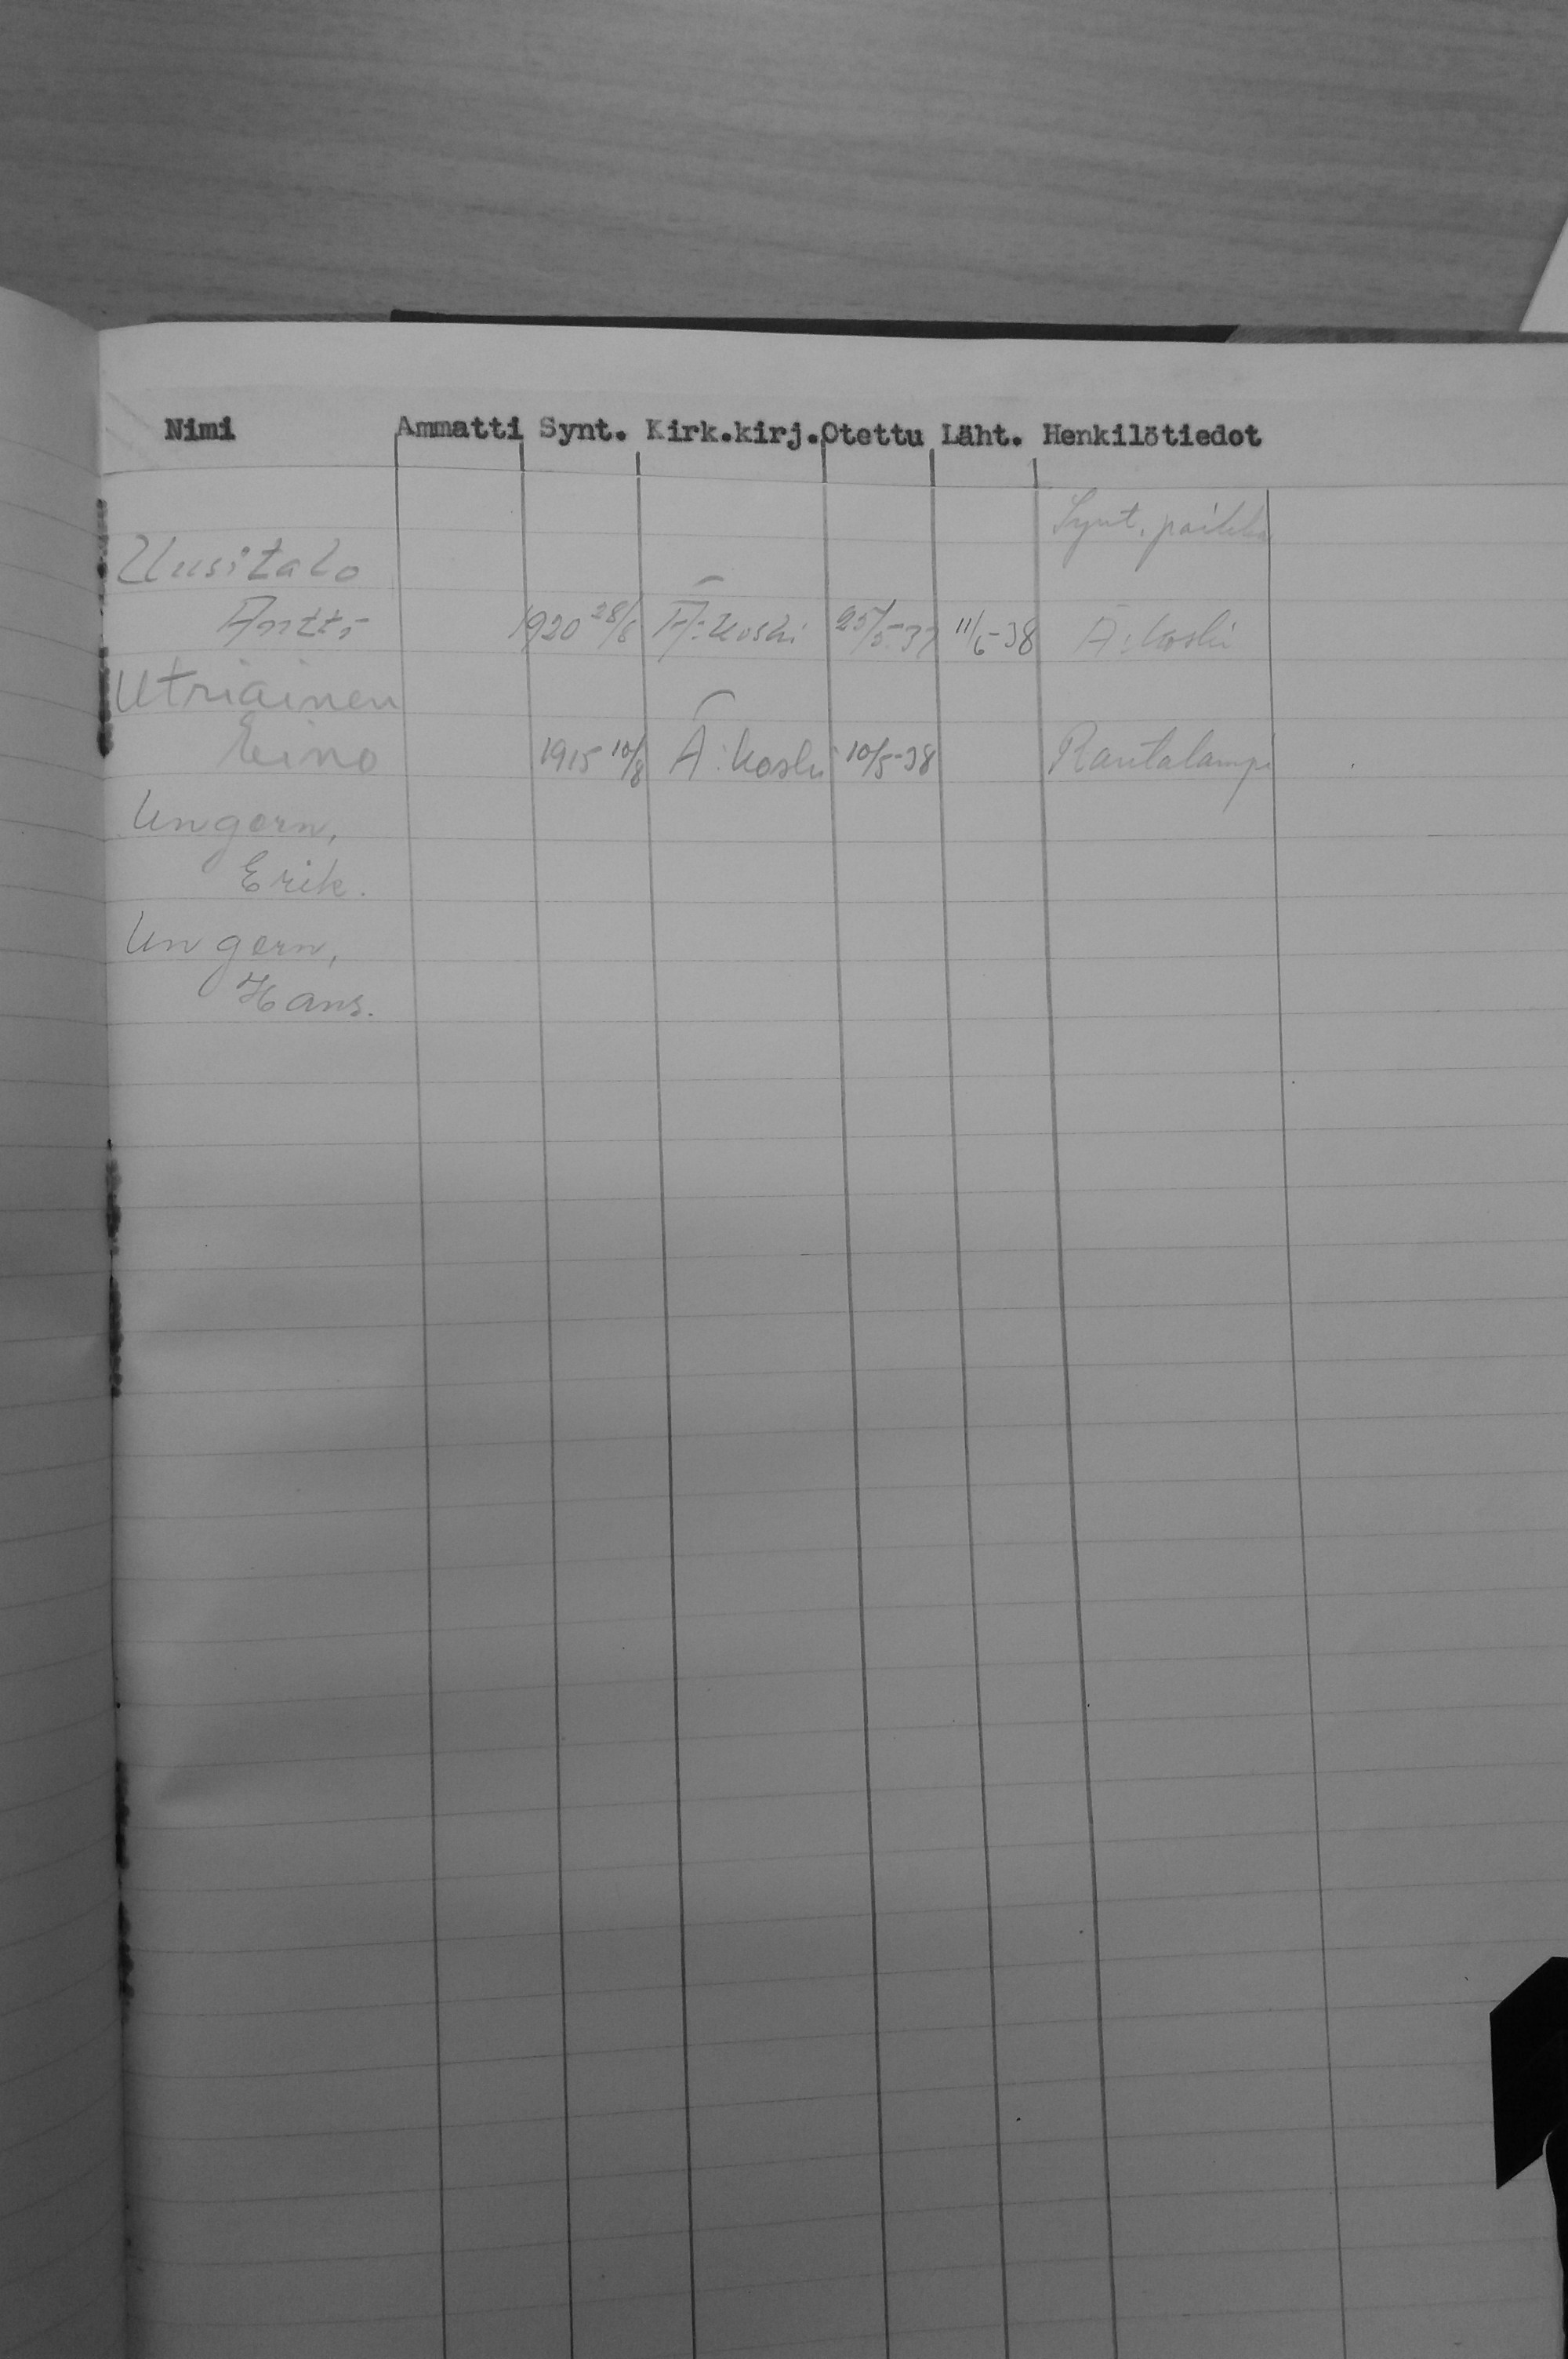 Nimi Ammatti Synt. Kirk.kirj. Otettu Läht. Henkilötiedot
Synt. paikka
Uusitalo
Antti 1920 28/6 Ä:koski 25/5-37 11/6-38 Ä:koski
Utriainen
Eino 1915 10/8 Ä:koski 10/5-38 Rautalampi
Ungern,
Erik.
Ungern,
Hans.